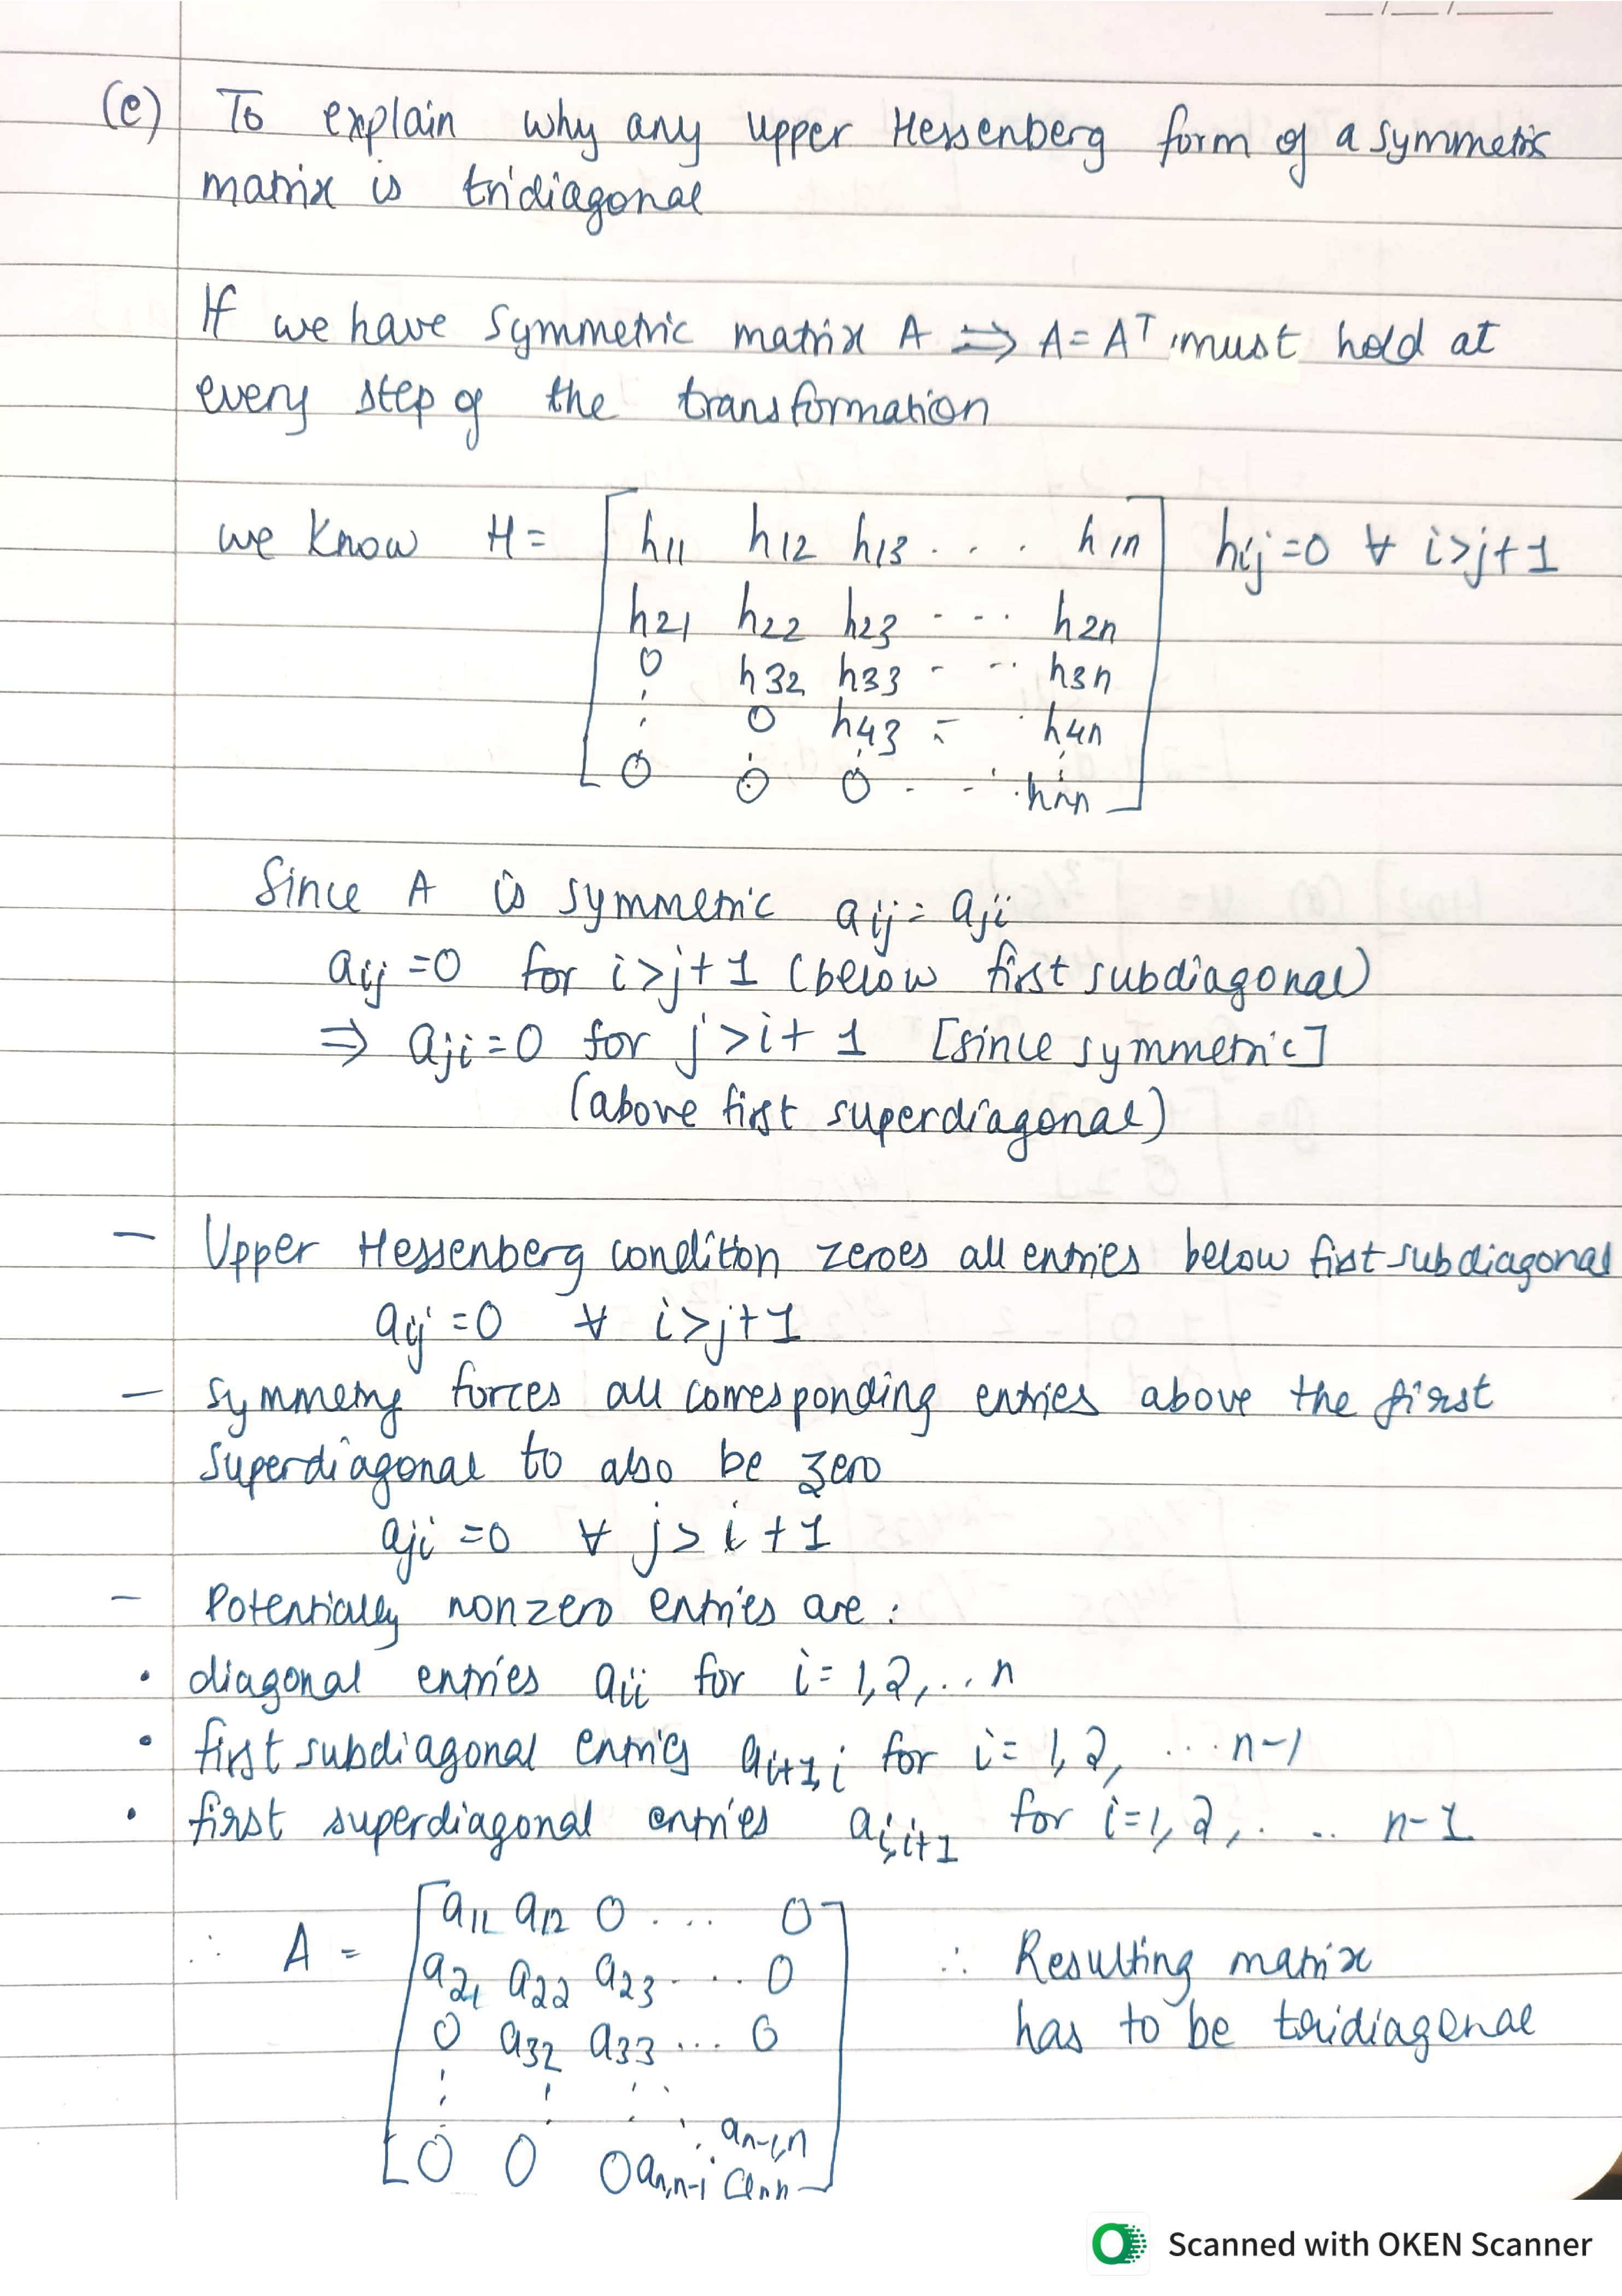 __/__/____
(e) To explain why any upper Hessenberg form of a symmetric
matrix is tridiagonal
If we have symmetric matrix A ⇒ A = Aᵀ must hold at
every step of the transformation
we know H = [ h11 h12 h13 . . . h1n ] hij = 0 ∀ i>j+1
h21 h22 h23 - - .. h2n
0 h32 h33 - - .. h3n
⋮ 0 h43 - . h4n
0 0 0 . - . hnn
Since A is symmetric aij = aji
aij = 0 for i>j+1 (below first subdiagonal)
⇒ aji = 0 for j>i+1 [since symmetric]
(above first superdiagonal)
— Upper Hessenberg condition zeroes all entries below first subdiagonal
aij = 0 ∀ i>j+1
— symmetry forces all corresponding entries above the first
superdiagonal to also be zero
aji = 0 ∀ j>i+1
— Potentially nonzero entries are :
• diagonal entries aii for i = 1,2,...n
• first subdiagonal entries ai+1,i for i = 1,2, ... n-1
• first superdiagonal entries ai,i+1 for i=1,2,. .. n-1
∴ A = [ a11 a12 0 . ... 0 ] ∴ Resulting matrix
a21 a22 a23 . ... 0 has to be tridiagonal
0 a32 a33 ... 0
⋮ ⋮ ⋱ ⋱ an-1,n
0 0 0 an,n-1 ann
Scanned with OKEN Scanner